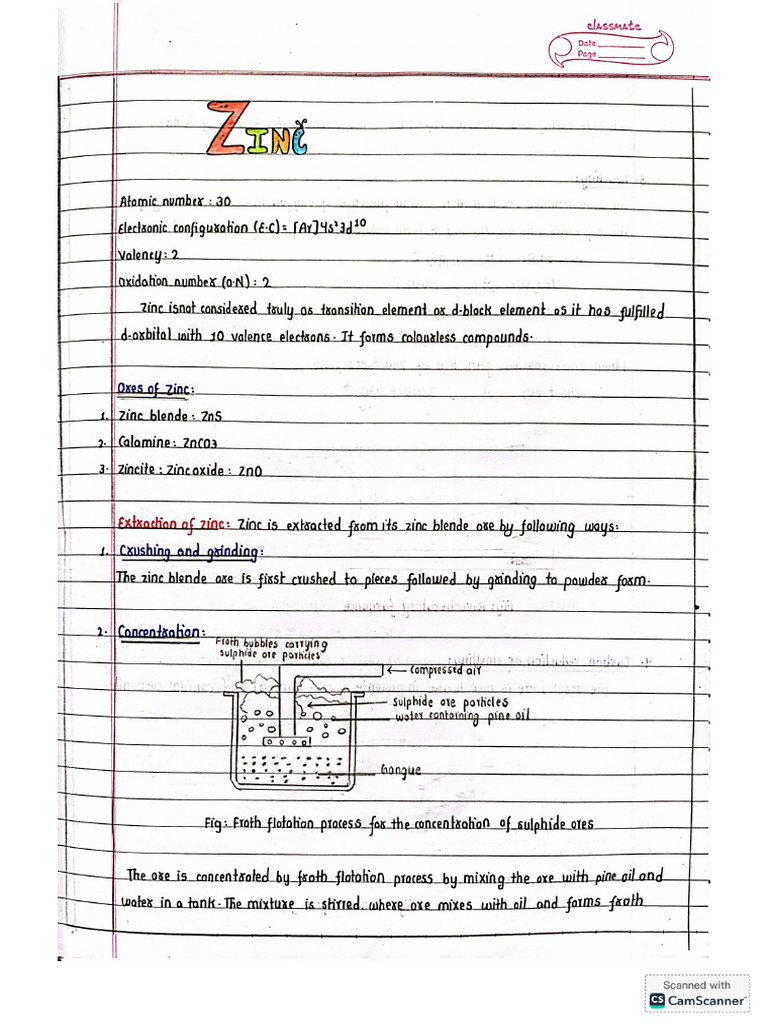 classmate
Date
Page
ZINC
Atomic number : 30
Electronic configuration (E.C) = [Ar]4s²3d¹⁰
Valency : 2
Oxidation number (O.N) : 2
Zinc isnot considered truly as transition element or d-block element as it has fulfilled
d-orbital with 10 valence electrons. It forms colourless compounds.
Ores of Zinc:
1. Zinc blende : ZnS
2. Calamine : ZnCO3
3. Zincite : Zinc oxide : ZnO
Extraction of zinc: Zinc is extracted from its zinc blende ore by following ways:
1. Crushing and grinding:
The zinc blende ore is first crushed to pieces followed by grinding to powder form.
2. Concentration:
Froth bubbles carrying
sulphide ore particles
compressed air
sulphide ore particles
water containing pine oil
Gangue
Fig: Froth flotation process for the concentration of sulphide ores
The ore is concentrated by froth flotation process by mixing the ore with pine oil and
water in a tank. The mixture is stirred where ore mixes with oil and forms froth
Scanned with
CS CamScanner